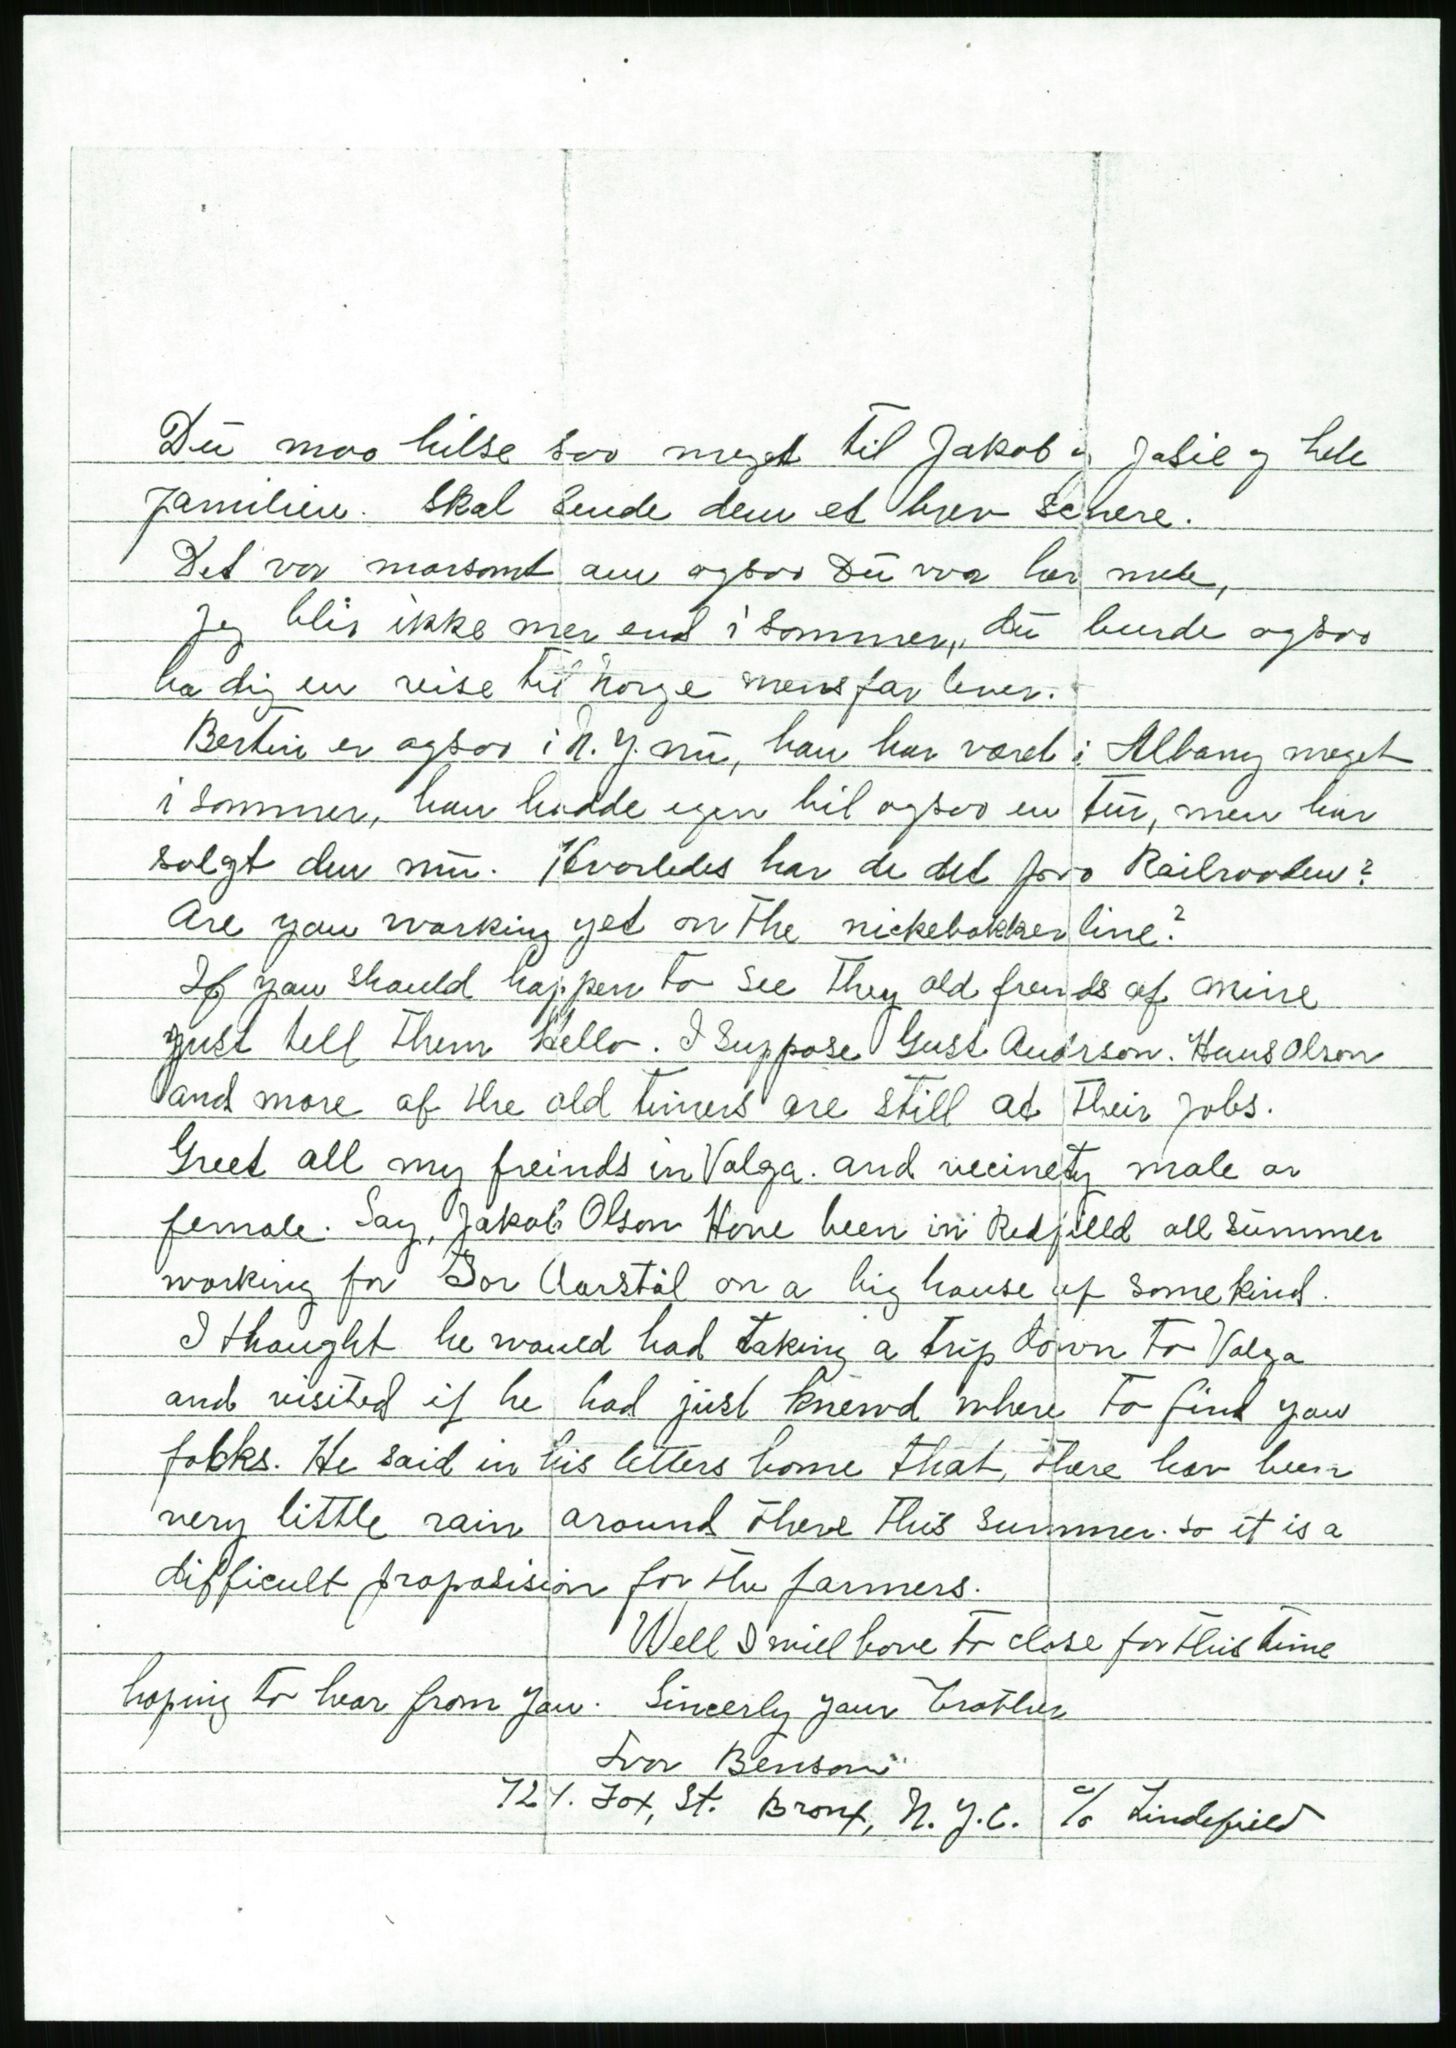 Dū moo hilse soo meget til Jakob og Josie og hele
familien. Skal sende dem et brev senere.
Det var morsomt om ogsoo Dū var her nede,
jeg blir ikke mer end i sommer, dū burde ogsoo
ha dig en reise til Norge mens far lever.
Bertin er ogsoo i N.Y. nū, han har været i Albany meget
i sommer, han hadde egen bil ogsoo en tūr, men har
solgt den nū. Hvorledes har de det poo Railrooden?
Are you working yet on the nickebokker line?
If you should happen to see they old frends of mine
yust tell them hello. I suppose Gust Andrson. Hans Olson
and more of the old timers are still at their jobs.
Greet all my freinds in Volga. and vecinety male or
female. Say, Jakob Olson Hove been in Redfield all summer
working for Tor Aarstål on a big house of some kind.
I thought he would had taking a trip down to Volga
and visited if he had just knewd where to find you
folks. He said in his letters home that, there hav been
very little rain around there this summer. so it is a
difficult proposision for the farmers.
Well I will have to close for this time
hoping to hear from you. Sincerly your brother
Ivor Benson
724. Fox, St. Bronx, N.Y.C. c/o Lindefield